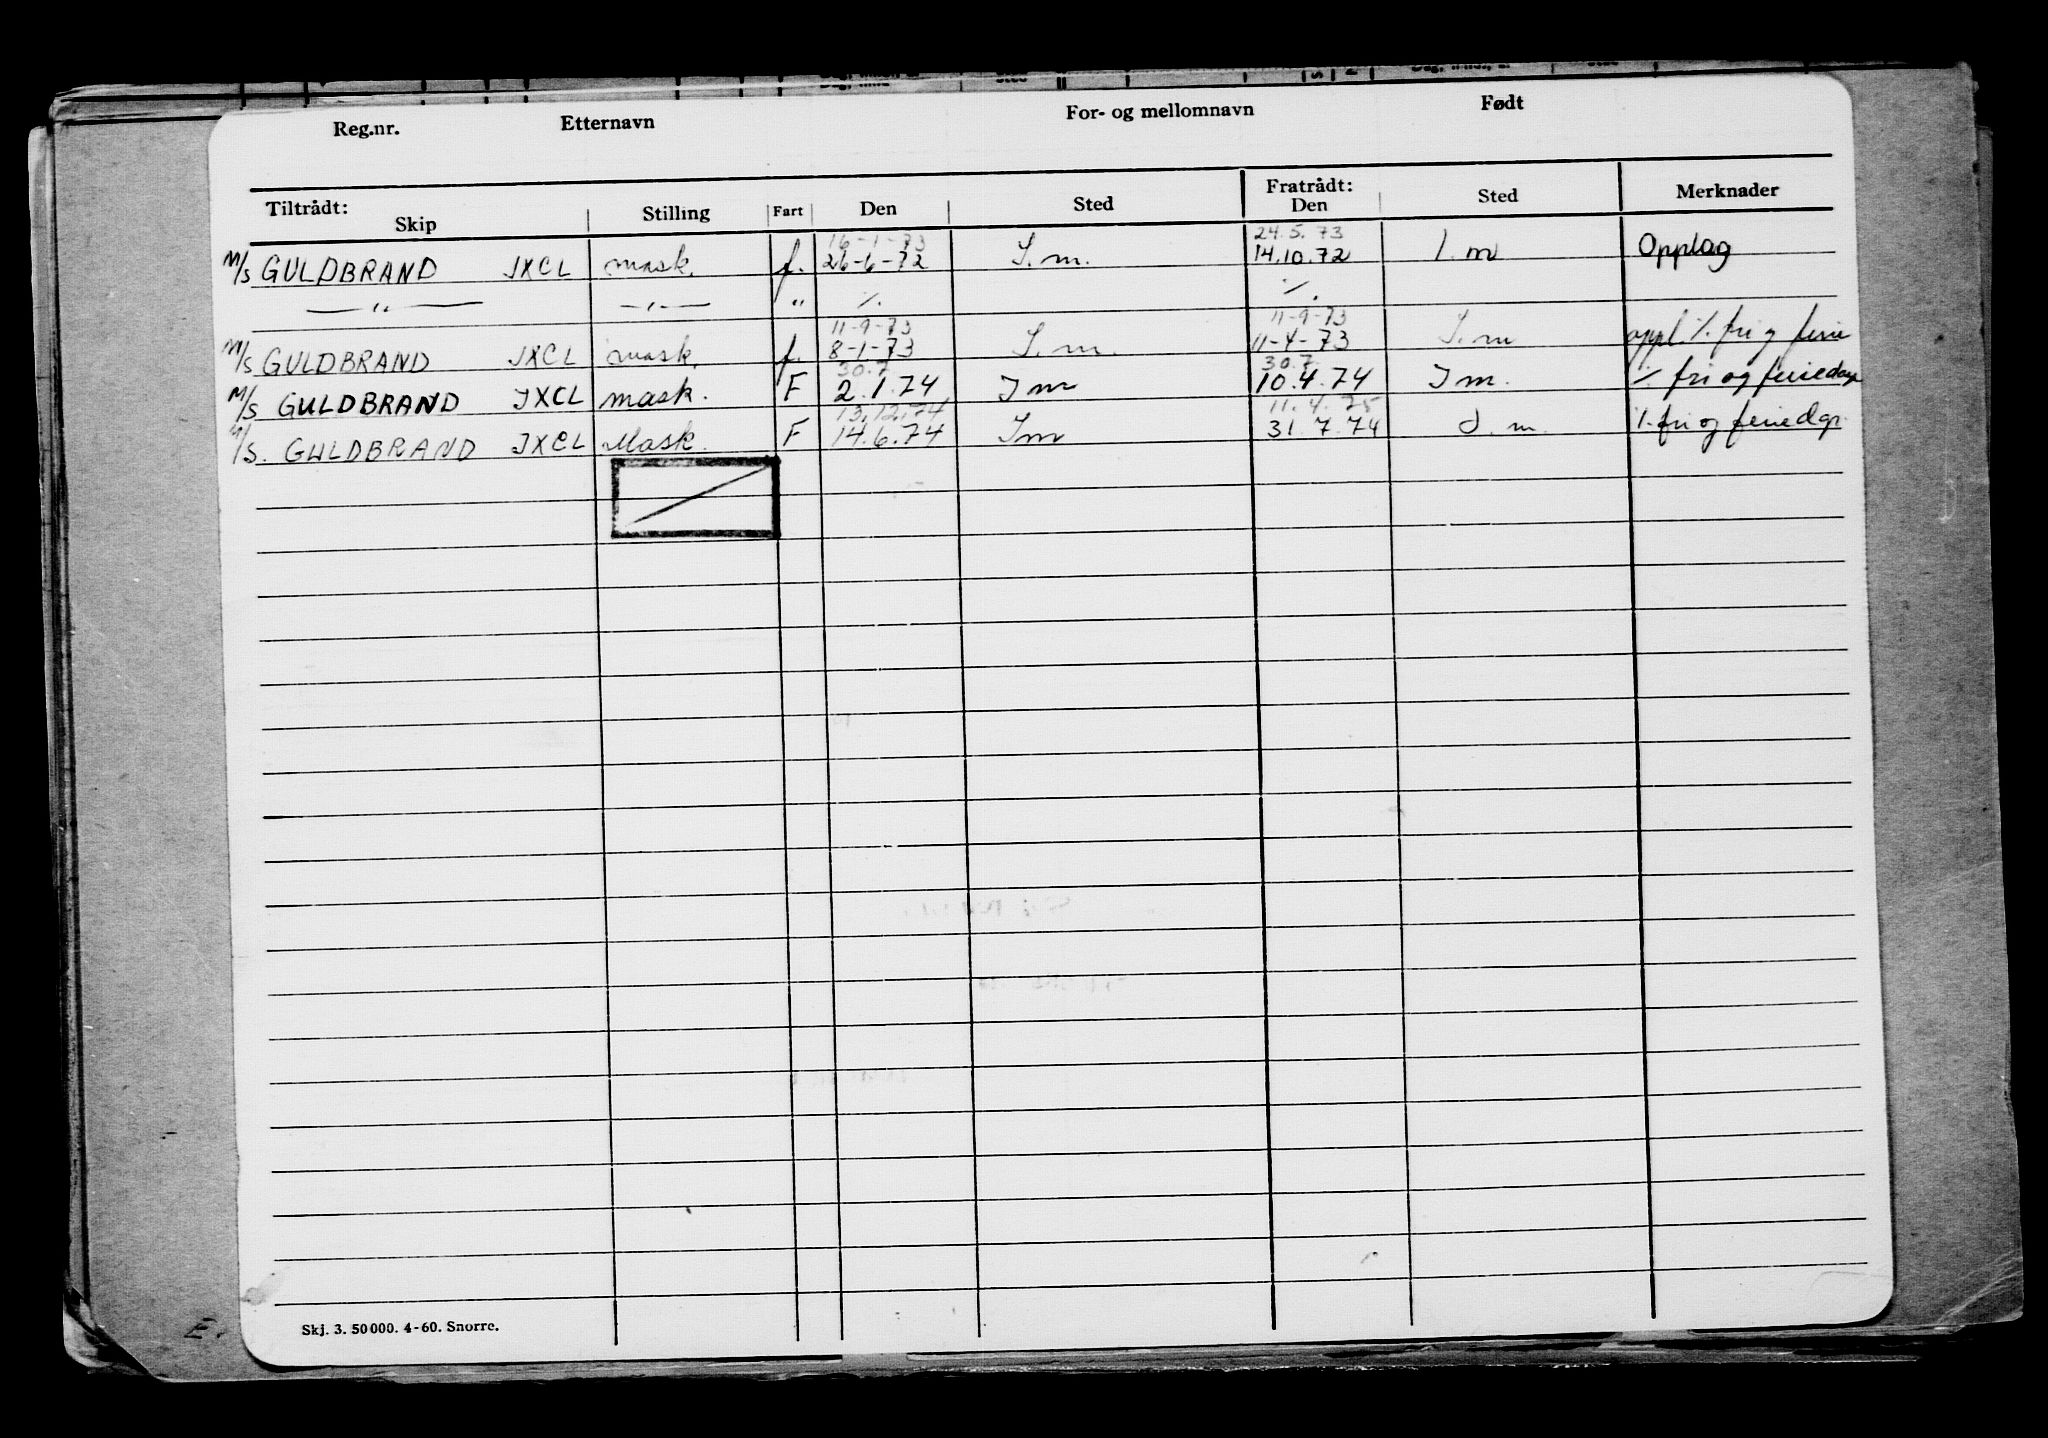 Reg.nr. Etternavn For- og mellomnavn Født
Tiltrådt: Fratrådt:
Skip Stilling Fart Den Sted Den Sted Merknader
16-1-73 24.5.73
M/S GULDBRAND JXCL mask. f. 26-6-72 I.m. 14.10.72 I.m Opplag
— " — — " — " ./. ./.
11-9-73 11-9-73
M/S GULDBRAND JXCL mask. f. 8-1-73 I.m. 11-4-73 I.m oppl. ./. fri og ferie
30.7 30.7.
M/S GULDBRAND JXCL mask. F 2.1.74 Im 10.4.74 Im. ./. fri og feriedage
13.12.74 11.4.75
M/S. GULDBRAND JXCL Mask. F 14.6.74 Im 31.7.74 I.m. ./. fri og feriedgr.
E.
Skj. 3. 50 000. 4-60. Snorre.